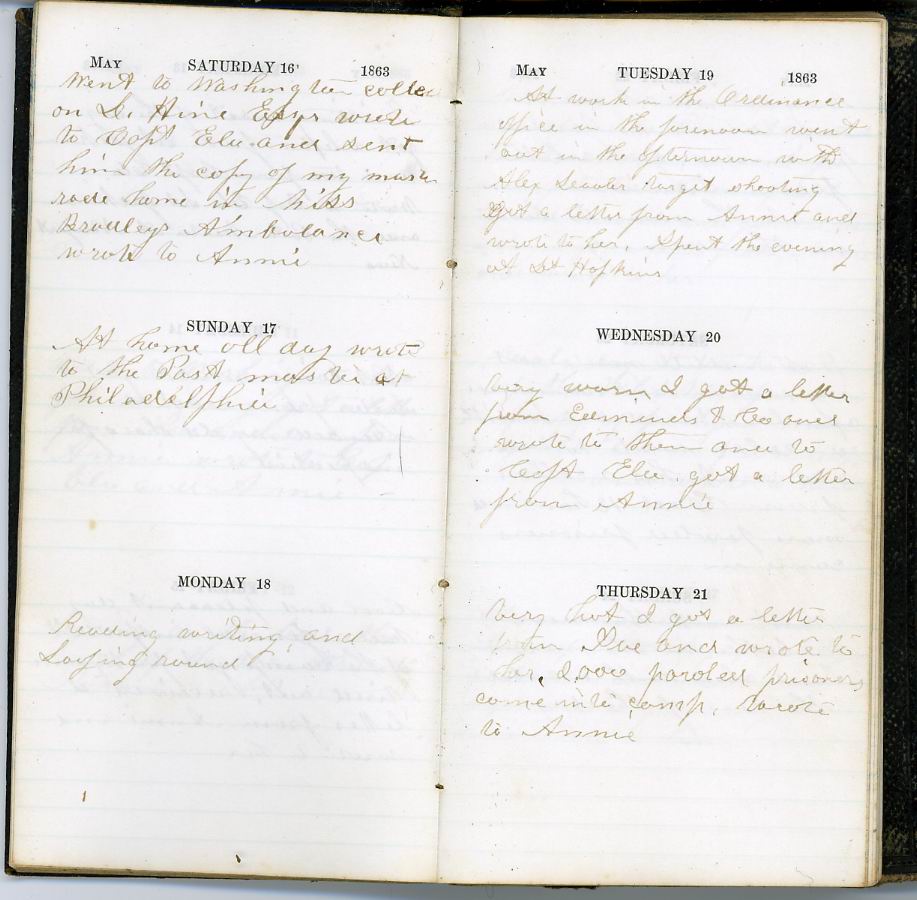 May SATURDAY 16 1863
Went to Washington called
on L. Hine Esqr wrote
to Capt Ela and sent
him the copy of my mus
rode home in Miss
Bradleys Ambulance
wrote to Annie
SUNDAY 17
At home all day wrote
to the Post master at
Philadelphia
MONDAY 18
Reading writing and
Laying round
May TUESDAY 19 1863
At work in the Ordinance
office in the forenoon went
out in the afternoon with
Alex target shooting
got a letter from Annie and
wrote to her. Spent the evening
at Hopkins
WEDNESDAY 20
Very warm I got a letter
from Edmunds & Co and
wrote to them and to
Capt Ela. got a letter
from Annie
THURSDAY 21
Very hot I got a letter
from and wrote to
her. 2,000 paroled prisoners
come into camp. wrote
to Annie